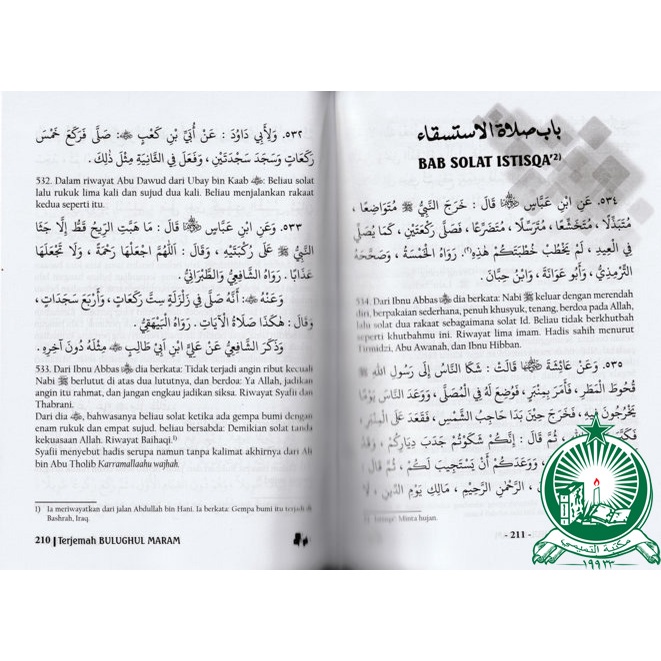 ٥٣٢. وَلِأَبِي دَاوُدَ : عَنْ أُبَيِّ بْنِ كَعْبٍ ﷺ: صَلَّى فَرَكَعَ خَمْسَ
رَكَعَاتٍ وَسَجَدَ سَجْدَتَيْنِ ، وَفَعَلَ فِي الثَّانِيَةِ مِثْلَ ذَلِكَ .
532. Dalam riwayat Abu Dawud dari Ubay bin Kaab : Beliau solat
lalu rukuk lima kali dan sujud dua kali. Beliau menjalankan rakaat
kedua seperti itu.
٥٣٣. وَعَنْ ابْنِ عَبَّاسٍ قَالَ : مَا هَبَّتِ الرِّيحُ قَطُّ إِلَّا جَثَا
النَّبِيُّ ﷺ عَلَى رُكْبَتَيْهِ ، وَقَالَ : اَللَّهُمَّ اجْعَلْهَا رَحْمَةً ، وَلَا تَجْعَلْهَا
عَذَابًا . رَوَاهُ الشَّافِعِيُّ وَالطَّبَرَانِيُّ .
وَعَنْهُ : أَنَّهُ صَلَّى فِي زَلْزَلَةٍ سِتَّ رَكَعَاتٍ ، وَأَرْبَعَ سَجَدَاتٍ ،
وَقَالَ : هٰكَذَا صَلَاةُ الْآيَاتِ . رَوَاهُ الْبَيْهَقِيُّ .
وَذَكَرَ الشَّافِعِيُّ عَنْ عَلِيِّ ابْنِ أَبِي طَالِبٍ مِثْلَهُ دُونَ آخِرِهِ .
533. Dari Ibnu Abbas dia berkata: Tidak terjadi angin ribut kecuali
Nabi ﷺ berlutut di atas dua lututnya, dan berdoa: Ya Allah, jadikan
angin itu rahmat, dan jangan engkau jadikan siksa. Riwayat Syafii dan
Thabrani.
Dari dia , bahwasanya beliau solat ketika ada gempa bumi dengan
enam rukuk dan empat sujud. beliau bersabda: Demikian solat tanda
kekuasaan Allah. Riwayat Baihaqi.1)
Syafii menyebut hadis serupa namun tanpa kalimat akhirnya dari Ali
bin Abu Tholib Karramallaahu wajhah.
1) Ia meriwayatkan dari jalan Abdullah bin Hani. Ia berkata: Gempa bumi itu terjadi di
Bashrah, Iraq.
210 | Terjemah BULUGHUL MARAM
باب صلاة الاستسقاء
BAB SOLAT ISTISQA'2)
٥٣٤. عَنِ ابْنِ عَبَّاسٍ قَالَ : خَرَجَ النَّبِيُّ ﷺ مُتَوَاضِعًا ،
مُتَبَذِّلًا ، مُتَخَشِّعًا ، مُتَرَسِّلًا ، مُتَضَرِّعًا ، فَصَلَّى رَكْعَتَيْنِ ، كَمَا يُصَلِّي
فِي الْعِيدِ ، لَمْ يَخْطُبْ خُطْبَتَكُمْ هَذِهِ . رَوَاهُ الْخَمْسَةُ ، وَصَحَّحَهُ
التِّرْمِذِيُّ ، وَأَبُو عَوَانَةَ ، وَابْنُ حِبَّانَ .
534. Dari Ibnu Abbas dia berkata: Nabi ﷺ keluar dengan merendah
diri, berpakaian sederhana, penuh khusyuk, tenang, berdoa pada Allah,
lalu solat dua rakaat sebagaimana solat Id. Beliau tidak berkhutbah
seperti khutbahmu ini. Riwayat lima imam. Hadis sahih menurut
Tirmidzi, Abu Awanah, dan Ibnu Hibban.
٥٣٥. وَعَنْ عَائِشَةَ قَالَتْ : شَكَا النَّاسُ إِلَى رَسُولِ اللهِ ﷺ
قُحُوطَ الْمَطَرِ ، فَأَمَرَ بِمِنْبَرٍ ، فَوُضِعَ لَهُ فِي الْمُصَلَّى ، وَوَعَدَ النَّاسَ يَوْمًا
يَخْرُجُونَ فِيهِ ، فَخَرَجَ حِينَ بَدَا حَاجِبُ الشَّمْسِ ، فَقَعَدَ عَلَى الْمِنْبَرِ
ثُمَّ قَالَ : إِنَّكُمْ شَكَوْتُمْ جَدَبَ دِيَارِكُمْ ،
وَوَعَدَكُمْ أَنْ يَسْتَجِيبَ لَكُمْ ،
الرَّحْمٰنِ الرَّحِيمِ ، مَالِكِ يَوْمِ الدِّينِ ،
Minta hujan.
- 211 -
مكتبة التميمي
١٩٩٣